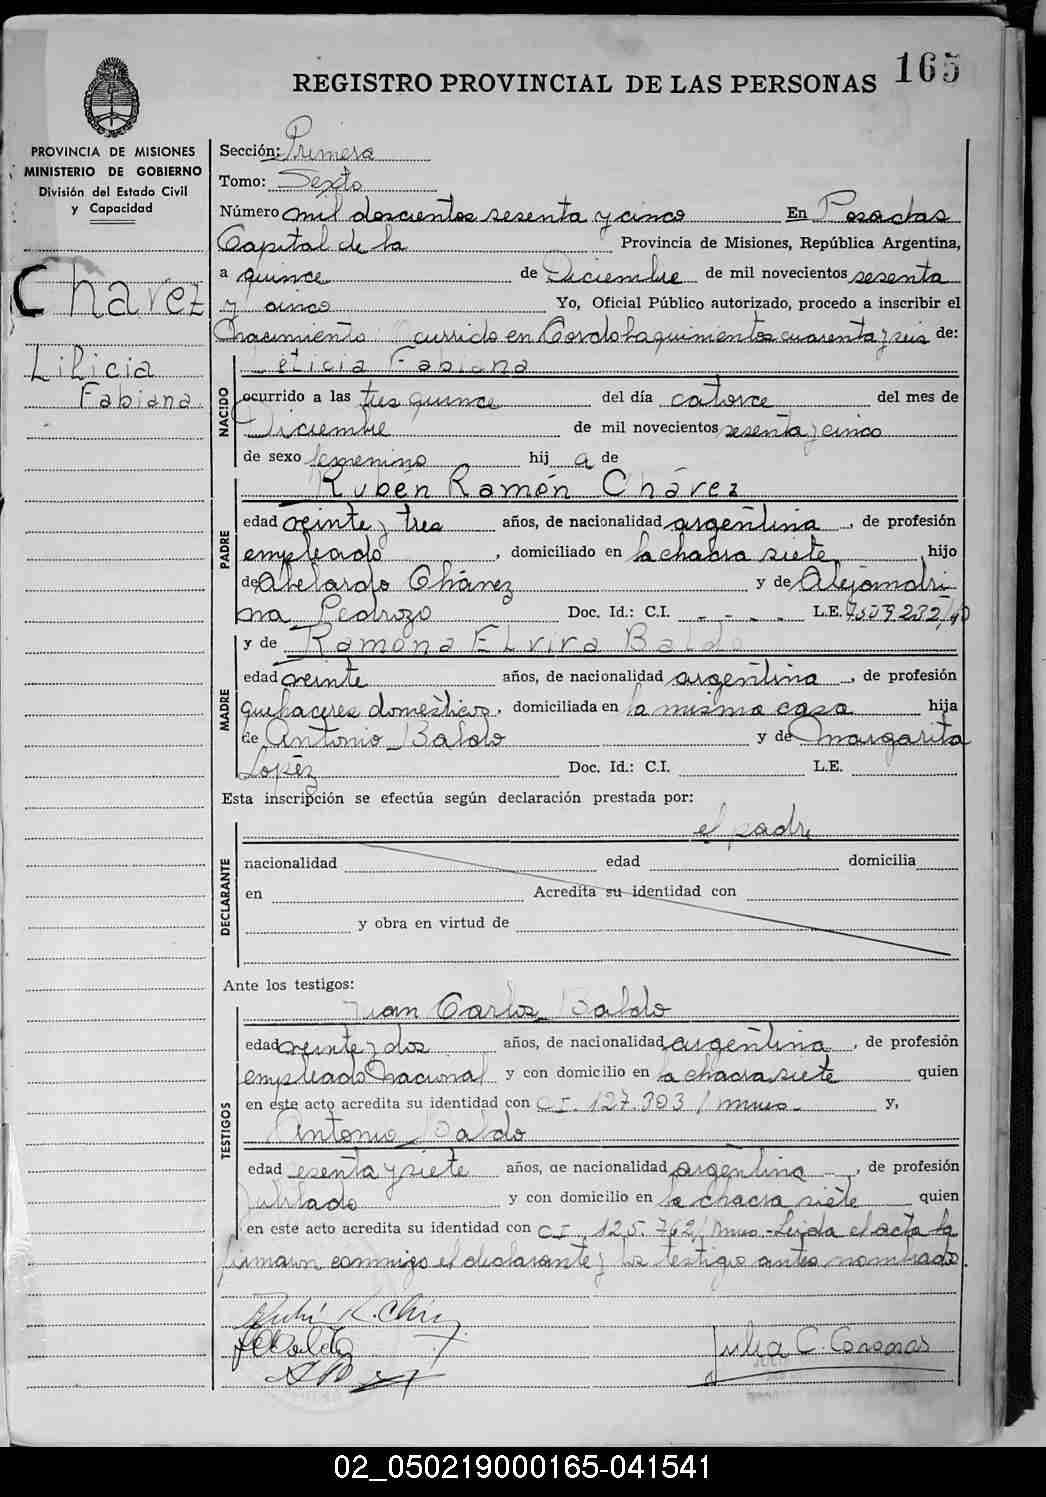 165
REGISTRO PROVINCIAL DE LAS PERSONAS
PROVINCIA DE MISIONES
MINISTERIO DE GOBIERNO
División del Estado Civil
y Capacidad
Chavez
Lilicia
Fabiana
Sección: Primera
Tomo: Sexto
Número mil doscientos sesenta y cinco En Posadas
Capital de la Provincia de Misiones, República Argentina,
a quince de Diciembre de mil novecientos sesenta
y cinco Yo, Oficial Público autorizado, procedo a inscribir el
Nacimiento: Ocurrido en Cordoba quinientos cuarenta y seis de:
NACIDO
Leticia Fabiana
ocurrido a las tres quince del día catorce del mes de
Diciembre de mil novecientos sesenta y cinco
de sexo femenino hij a de
PADRE
Rubén Ramón Chávez
edad veinte y tres años, de nacionalidad argentina, de profesión
empleado, domiciliado en la chacra siete, hijo
de Abelardo Chávez y de Alejandri
na Pedrozo Doc. Id.: C.I. - - - - L.E. 7.509.232/40
y de Ramona Elvira Baldo
MADRE
edad veinte años, de nacionalidad argentina, de profesión
quehaceres domésticos, domiciliada en la misma casa hija
de Antonio Baldo y de Margarita
Lopéz Doc. Id.: C.I. L.E.
Esta inscripción se efectúa según declaración prestada por:
DECLARANTE
el padre
nacionalidad edad domicilia
en Acredita su identidad con
y obra en virtud de
Ante los testigos:
TESTIGOS
Juan Carlos Baldo
edad veinte y dos años, de nacionalidad argentina, de profesión
empleado nacional y con domicilio en la chacra siete quien
en este acto acredita su identidad con C.I. 127.303/mnes.- y,
Antonio Baldo
edad sesenta y siete años, de nacionalidad argentina, de profesión
Jubilado y con domicilio en la chacra siete quien
en este acto acredita su identidad con C.I. 125.762/mnes.- Leida el acta la
firman conmigo el declarante y los testigos antes nombrados.
Julia C. Conoras
02_050219000165-041541